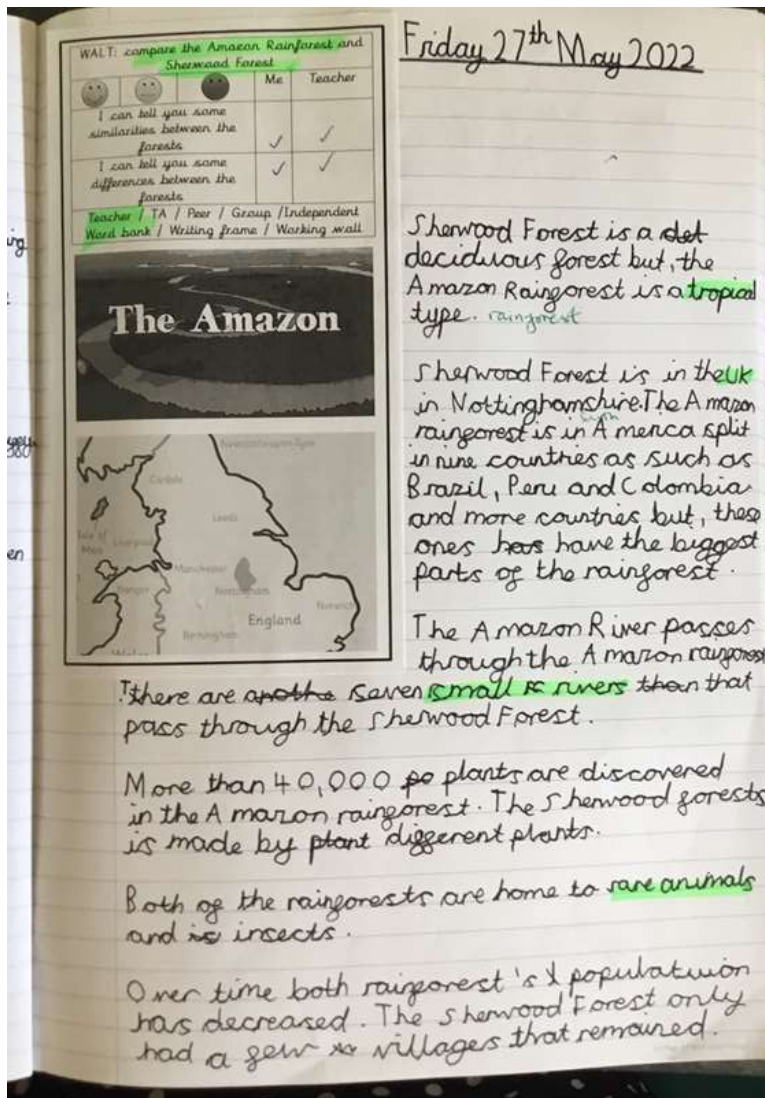 WALT: compare the Amazon Rainforest and
Sherwood Forest
Me Teacher
I can tell you some
similarities between the
forests
I can tell you some
differences between the
forests
Teacher / TA / Peer / Group /Independent
Word bank / Writing frame / Working wall
The Amazon
Newcastle upon Tyne
Carlisle
Leeds
Isle of
Man
Liverpool
Manchester
Bangor
Nottingham
Norwich
England
Birmingham
Wales
Friday 27th May 2022
Sherwood Forest is a det
deciduous forest but, the
Amazon Rainforest is a tropical
type. rainforest
Sherwood Forest is in the UK
in Nottinghamshire. The Amazon
rainforest is in America split
in nine countries as such as
Brazil, Peru and Colombia
and more countries but, these
ones has have the biggest
parts of the rainforest.
The Amazon River passes
through the Amazon rainforest
There are anothe seven small rivers than that
pass through the Sherwood Forest.
More than 40,000 po plants are discovered
in the Amazon rainforest. The Sherwood forests
is made by plant different plants.
Both of the rainforests are home to rare animals
and is insects.
Over time both rainforest's populatuion
has decreased. The Sherwood Forest only
had a few villages that remained.